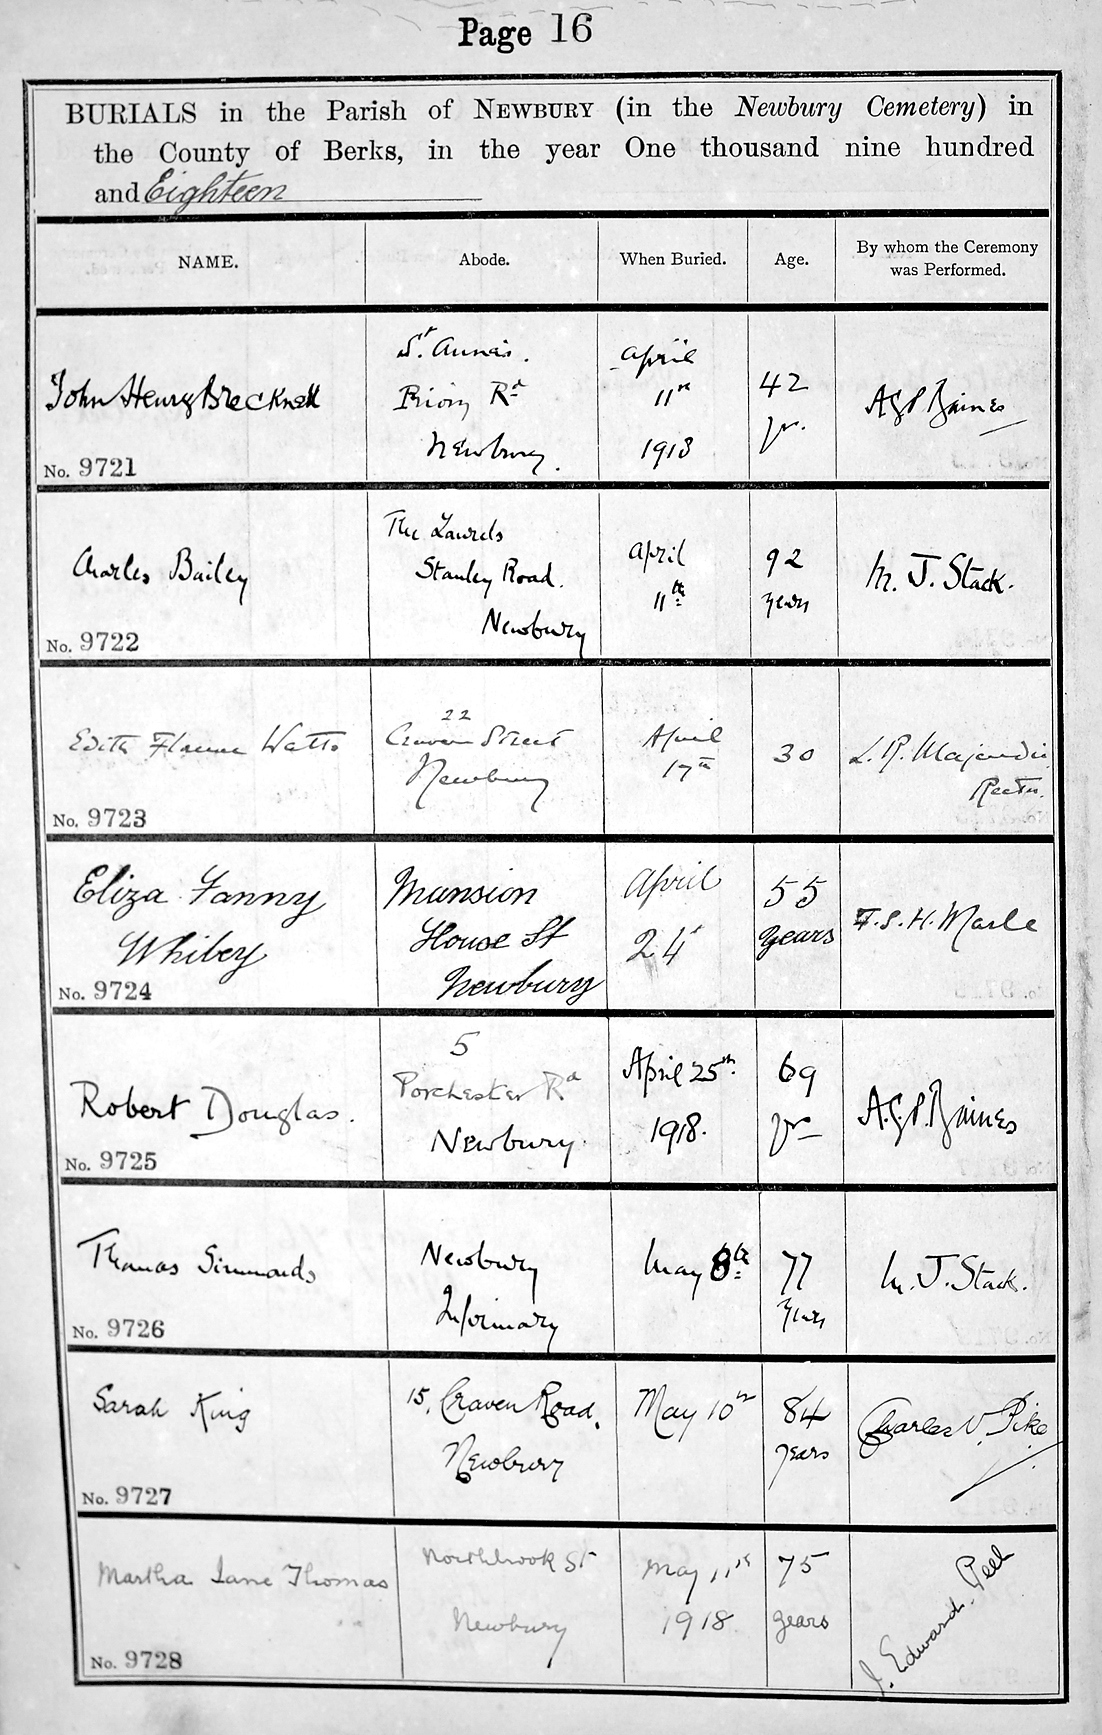 Page 16
BURIALS in the Parish of NEWBURY (in the Newbury Cemetery) in
the County of Berks, in the year One thousand nine hundred
and Eighteen
NAME.
Abode.
When Buried.
Age.
By whom the Ceremony
was Performed.
John Henry Brecknell
No. 9721
St. Anne's.
Priory Rd
Newbury.
April
11th
1918
42
yr.
A.G.P. Baines
Charles Bailey
No. 9722
The Laurels
Stanley Road.
Newbury
April
11th
92
years
M. J. Stack.
Edith Florence Watts
No. 9723
22
Craven Street
Newbury
April
17th
30
L. R. Majendie
Rector.
Eliza Fanny
Whibey
No. 9724
Mansion
House St
Newbury
April
24
55
years
F. S. H. Marle
Robert Douglas.
No. 9725
5
Porchester Rd
Newbury.
April 25th.
1918.
69
yr
A.G.P. Baines
Thomas Simmonds
No. 9726
Newbury
Infirmary
May 8th
77
years
M. J. Stack.
Sarah King
No. 9727
15, Craven Road,
Newbury
May 10th
84
years
Charles V. Pike
Martha Jane Thomas
No. 9728
Northbrook St
Newbury
May 11th
1918
75
years
J. Edward Peel